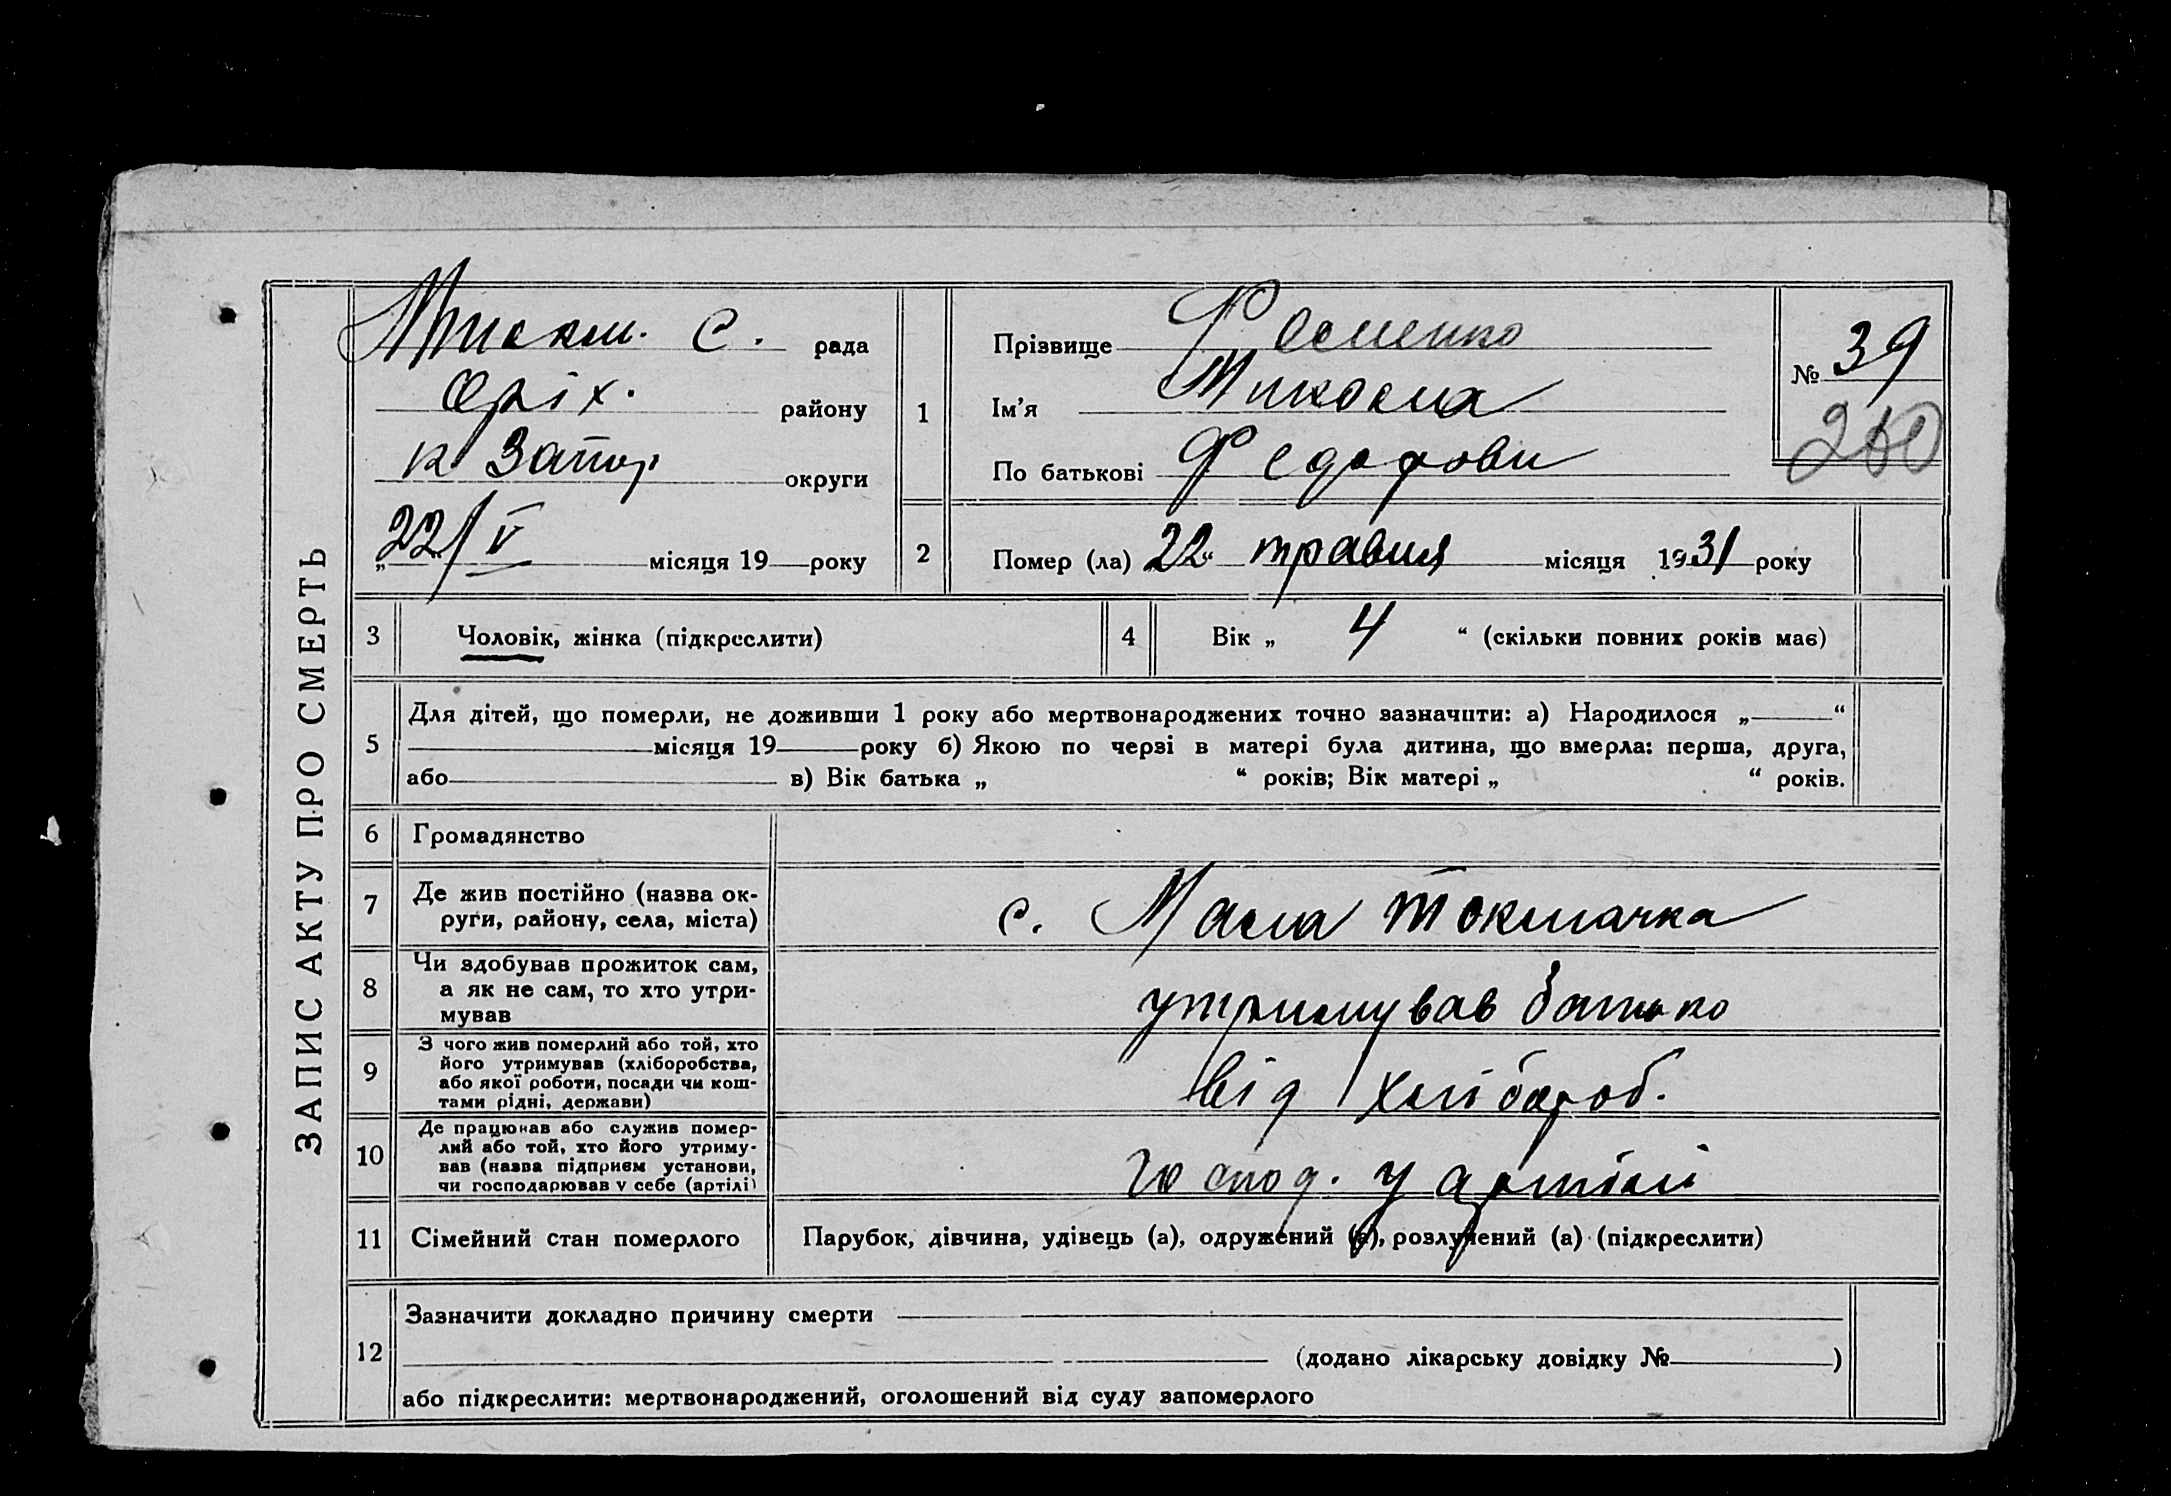 ЗАПИС АКТУ ПРО СМЕРТЬ
М.Токм. С. рада
Оріх. району
к Запор округи
„22/V місяця 19 року
1
Прізвище Фоменко
Ім’я Микола
По батькові Федорови
№ 39
2 Помер (ла) 22“ травня місяця 1931 року
3 Чоловік, жінка (підкреслити)
4 Вік „ 4 “ (скільки повних років має)
5 Для дітей, що померли, не доживши 1 року або мертвонароджених точно зазначити: а) Народилося „ “
місяця 19 року б) Якою по черзі в матері була дитина, що вмерла: перша, друга,
або в) Вік батька „ “ років; Вік матері „ “ років.
6 Громадянство
7 Де жив постійно (назва ок-
руги, району, села, міста)
с. Мала Токмачка
8 Чи здобував прожиток сам,
а як не сам, то хто утри-
мував
утримував батько
9 З чого жив померлий або той, хто
його утримував (хліборобства,
або якої роботи, посади чи кош-
тами рідні, держави)
від хлібороб.
10 Де працював або служив помер-
лий або той, хто його утриму-
вав (назва підприєм установи,
чи господарював у себе (артілі)
господ. у артілі
11 Сімейний стан померлого
Парубок, дівчина, удівець (а), одружений (а), розлучений (а) (підкреслити)
12 Зазначити докладно причину смерти
(додано лікарську довідку № )
або підкреслити: мертвонароджений, оголошений від суду запомерлого